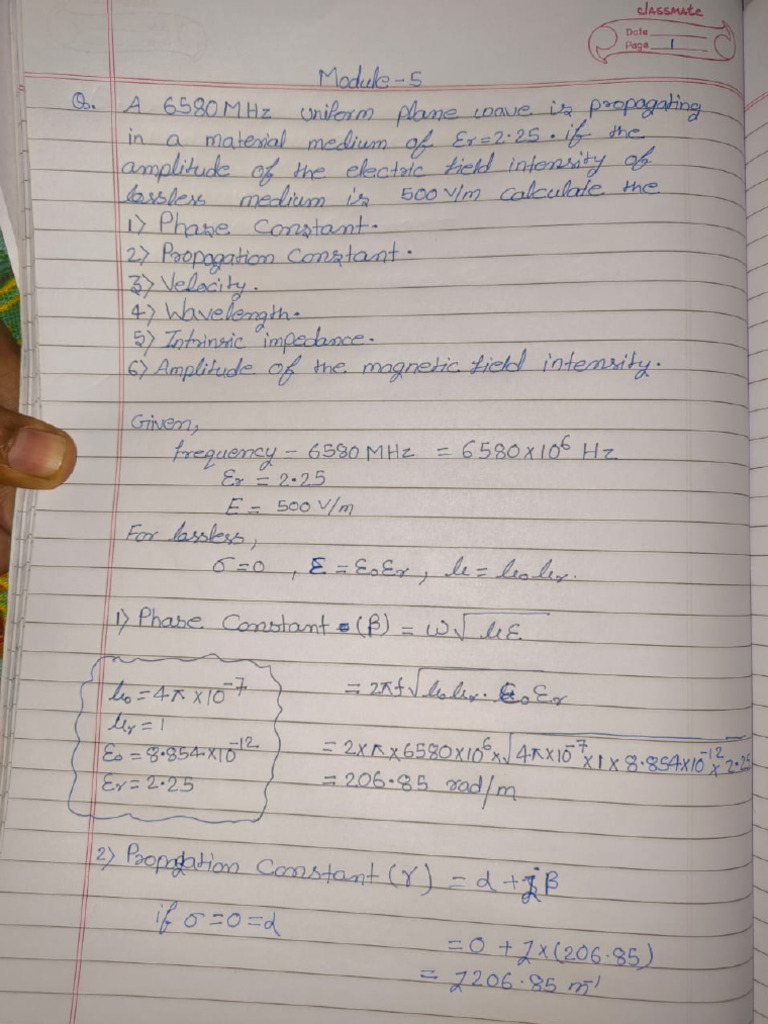 classmate
Date
Page 1
Module-5
Q. A 6580MHz uniform plane wave is propagating
in a material medium of Er=2.25. if the
amplitude of the electric field intensity of
lossless medium is 500 V/m calculate the
1) Phase Constant.
2) Propogation Constant.
3) Velocity.
4) Wavelength.
5) Intrinsic impedance.
6) Amplitude of the magnetic field intensity.
Given,
frequency - 6580 MHz = 6580×10⁶ Hz
Er = 2.25
E = 500 V/m
For lossless,
σ=0 , ε = ε₀εr, μ = μ₀μr.
1) Phase Constant (β) = ω√με
= 2πf√μ₀μr. ε₀εr
= 2×π×6580×10⁶×√4π×10⁻⁷×1×8.854×10⁻¹²×2.25
= 206.85 rad/m
μ₀ = 4π×10⁻⁷
μr = 1
ε₀ = 8.854×10⁻¹²
εr = 2.25
2) Propogation Constant (γ) = α + jβ
if σ=0=α
= 0 + j×(206.85)
= j206.85 m⁻¹